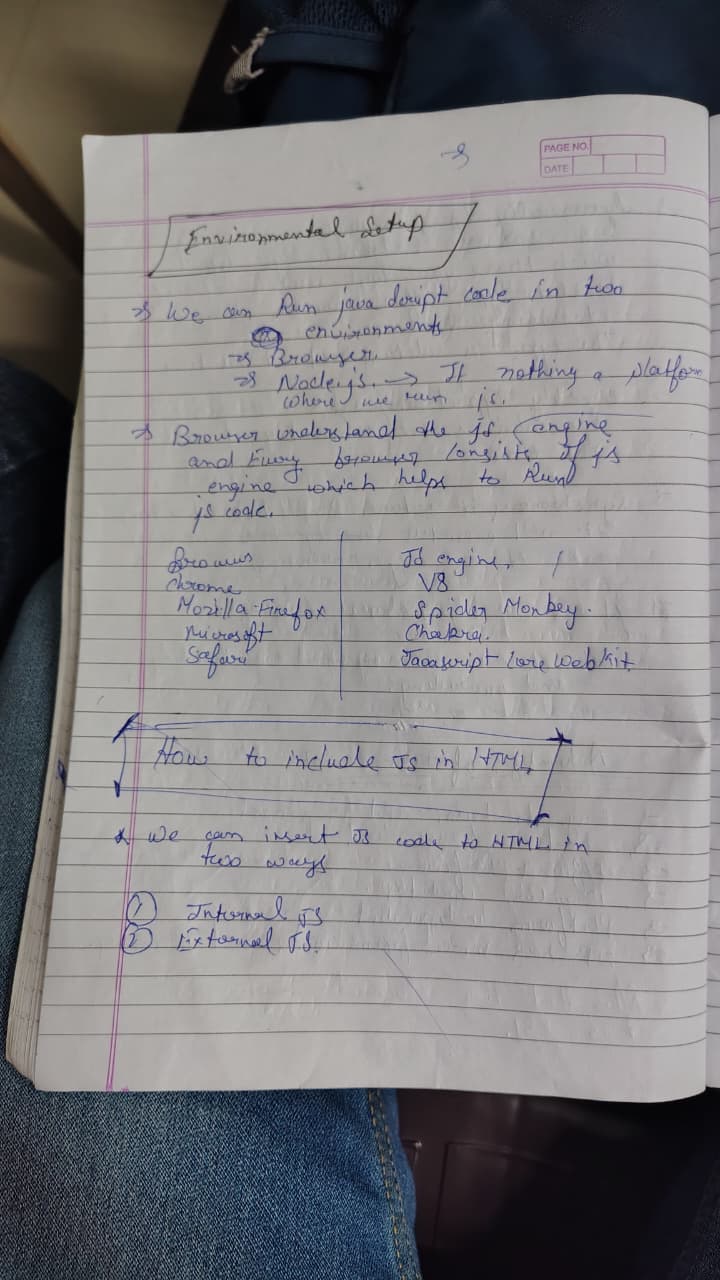 PAGE NO.
DATE
Environmental Setup
⇒ We can Run java script code in two
environments
⇒ Browser.
⇒ Node.js. → It nothing a platform
where we run js.
⇒ Browser understand the js engine
and Every browser consists of js
engine which helps to Run
js code.
Browers | JS engine.
Chrome | V8
Mozilla Firefox | Spider Monkey.
Microsoft | Chakra.
Safari | Javascript Core Webkit.
How to include JS in HTML
* We can insert JS code to HTML in
two ways
① Internal JS
② External JS.